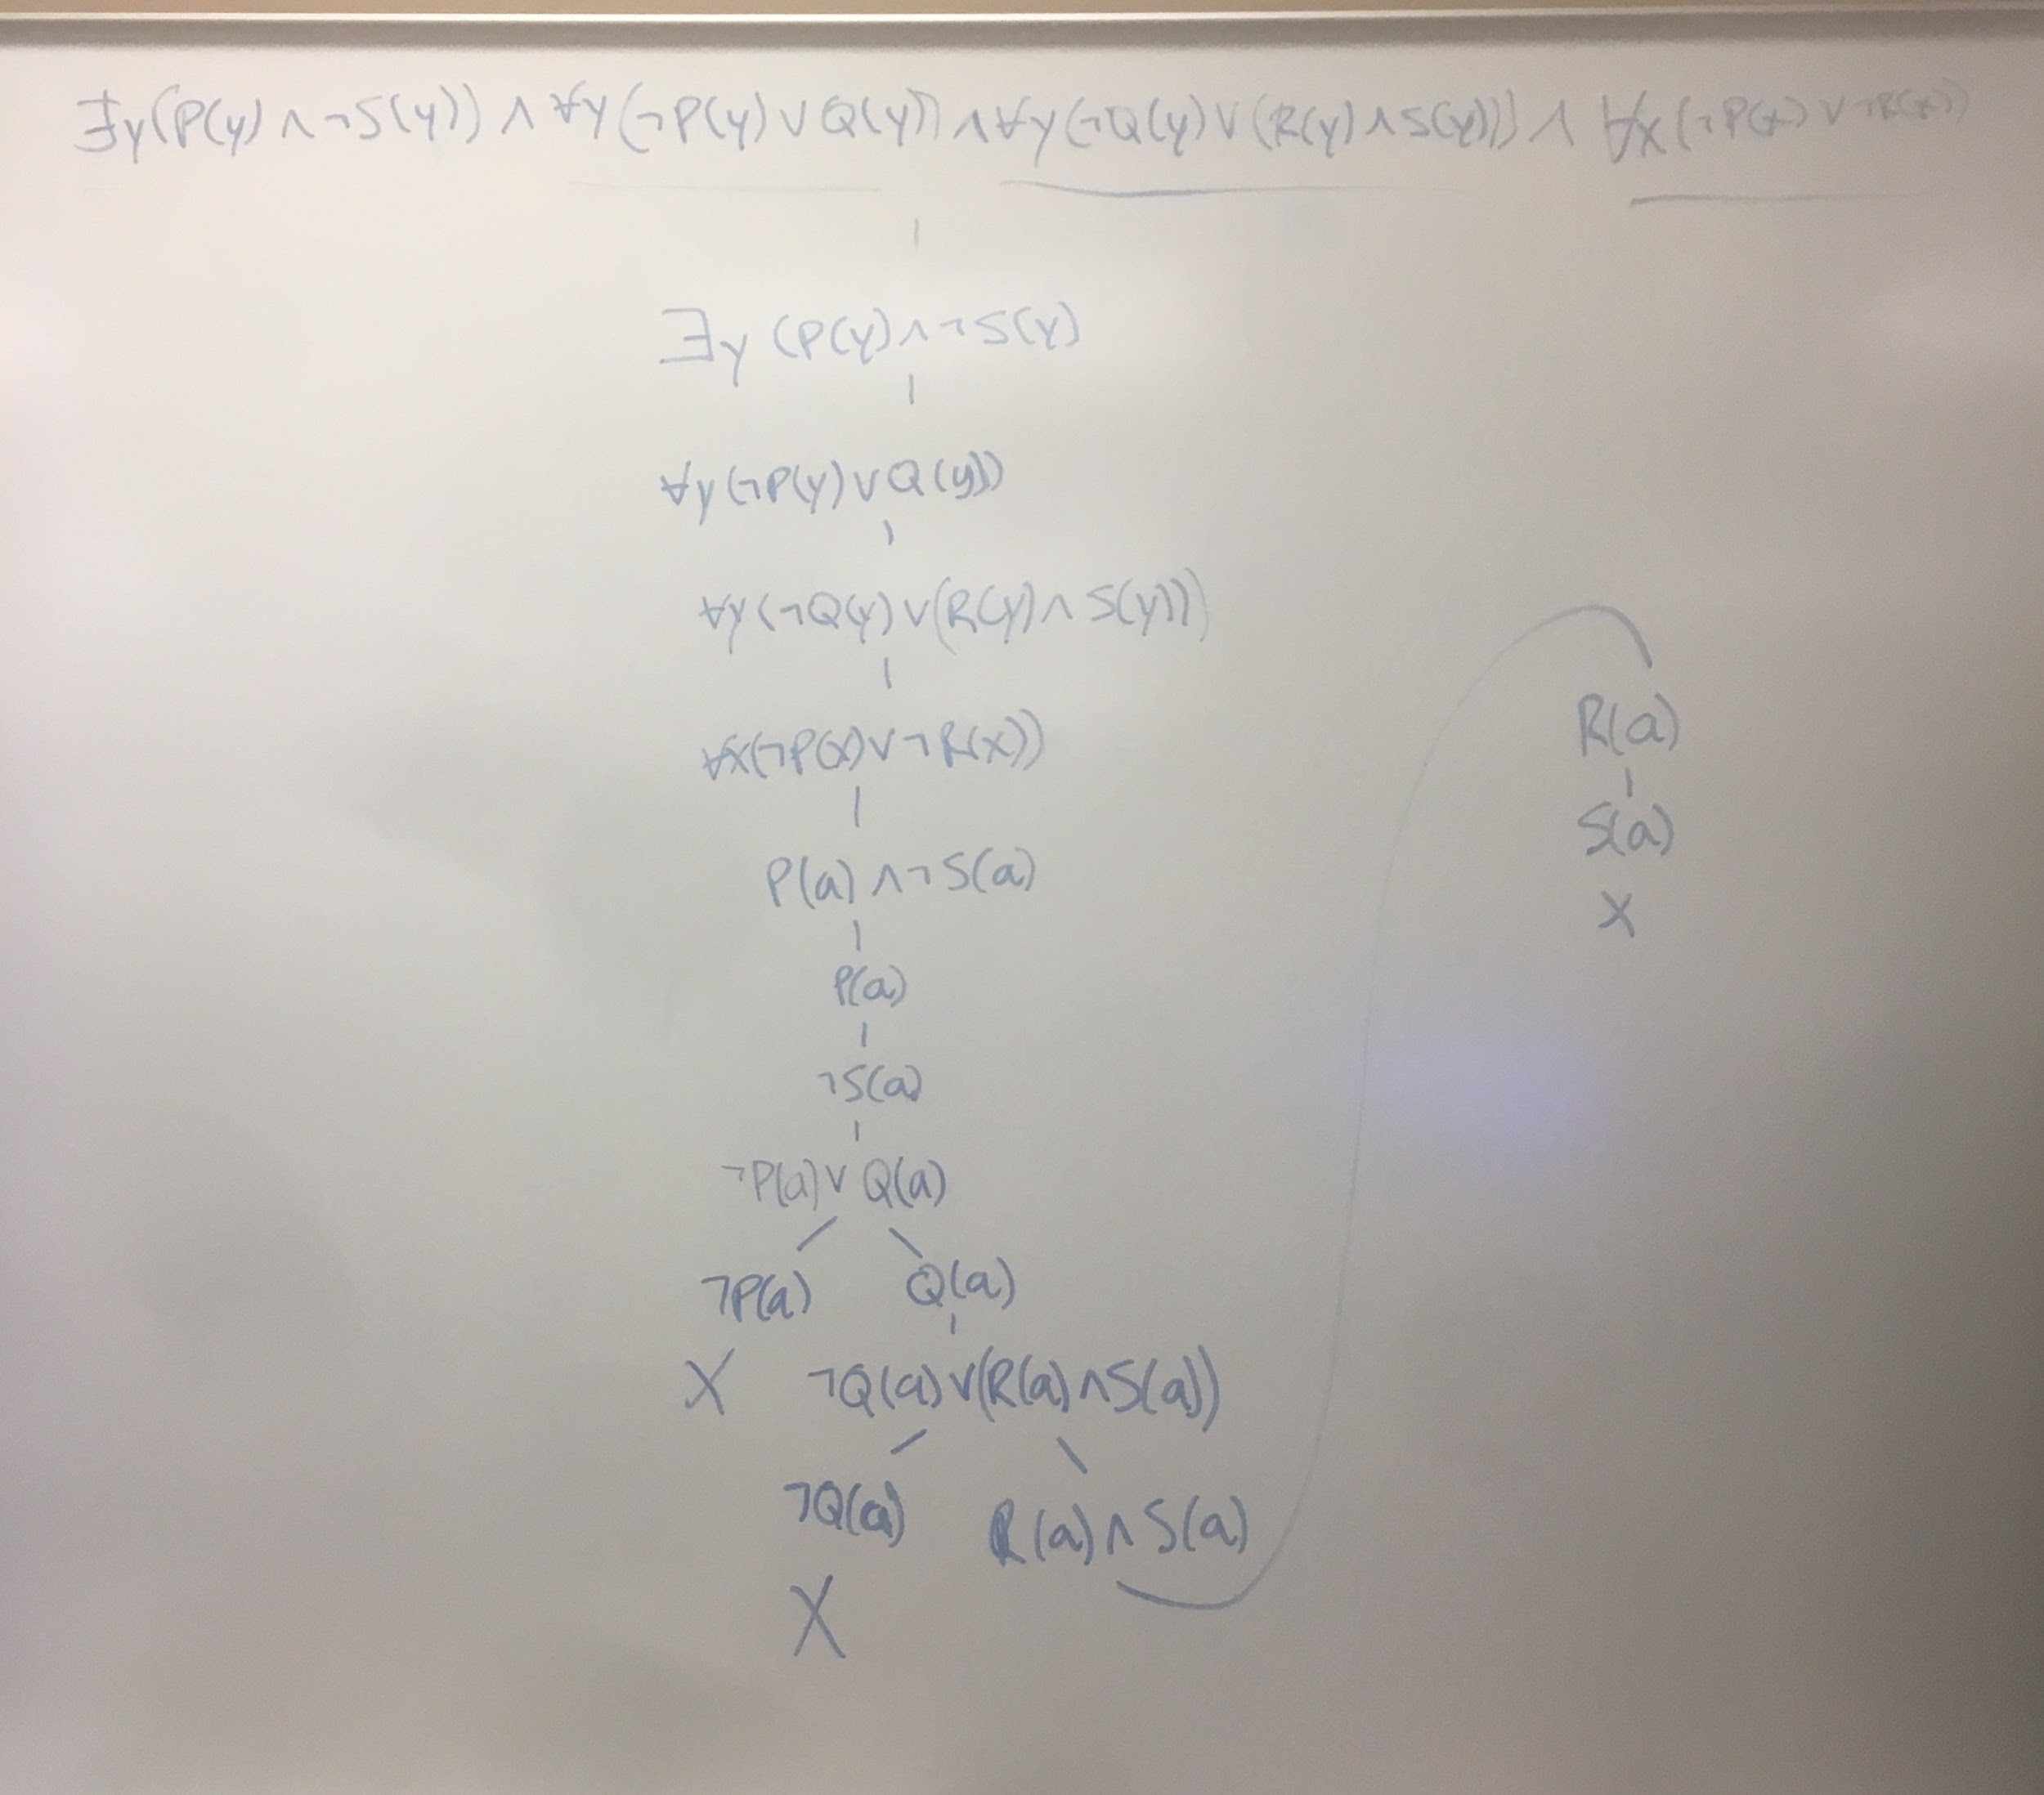 ∃y(P(y)∧¬S(y))∧∀y(¬P(y)∨Q(y))∧∀y(¬Q(y)∨(R(y)∧S(y)))∧∀x(¬P(x)∨¬R(x))
∃y(P(y)∧¬S(y)
∀y(¬P(y)∨Q(y))
∀y(¬Q(y)∨(R(y)∧S(y)))
∀x(¬P(x)∨¬R(x))
P(a)∧¬S(a)
P(a)
¬S(a)
¬P(a)∨Q(a)
¬P(a) Q(a)
X ¬Q(a)∨(R(a)∧S(a))
¬Q(a) R(a)∧S(a)
X
R(a)
S(a)
X